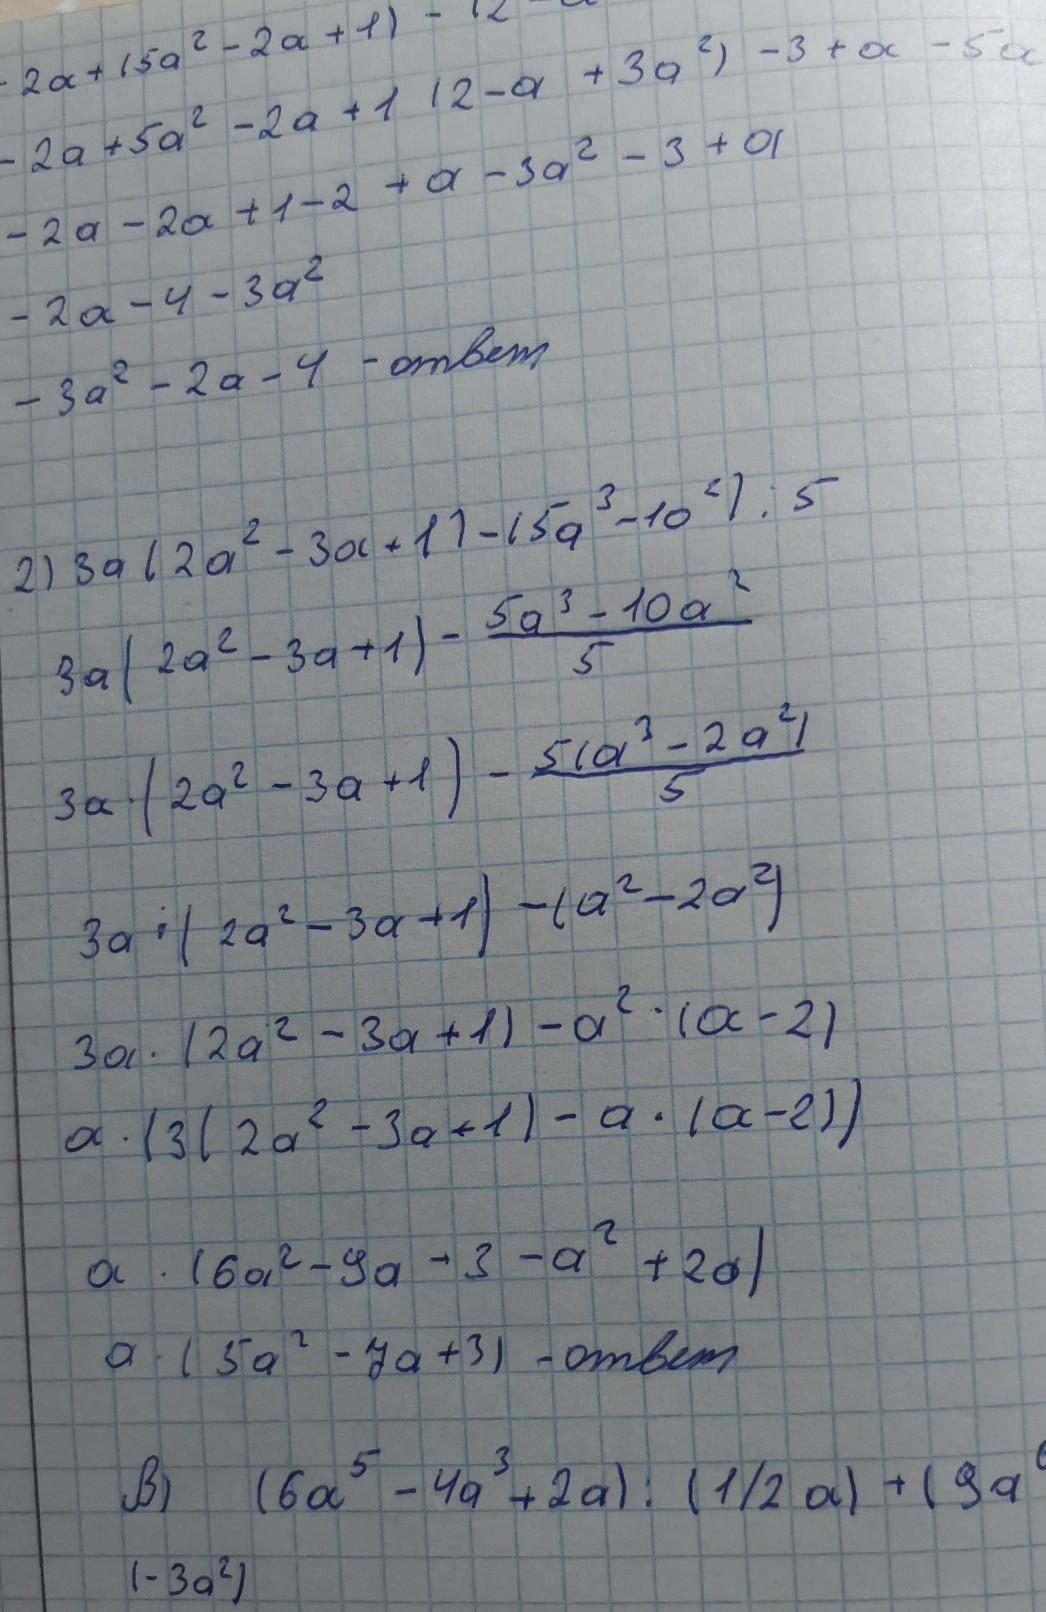 - 2a + (5a² - 2a + 1) - (2 - a
- 2a + 5a² - 2a + 1 (2 - a + 3a²) - 3 + a - 5a
- 2a - 2a + 1 - 2 + a - 3a² - 3 + a
- 2a - 4 - 3a²
- 3a² - 2a - 4 - ответ
2) 3a (2a² - 3a + 1) - (5a³ - 10²) : 5
3a (2a² - 3a + 1) - (5a³ - 10a²)/5
3a · (2a² - 3a + 1) - 5(a³ - 2a²)/5
3a · (2a² - 3a + 1) - (a² - 2a²)
3a · (2a² - 3a + 1) - a² · (a - 2)
a · (3(2a² - 3a + 1) - a · (a - 2))
a · (6a² - 9a + 3 - a² + 2a)
a · (5a² - 7a + 3) - ответ
в) (6a⁵ - 4a³ + 2a) : (1/2 a) + (9a⁶
(-3a²)